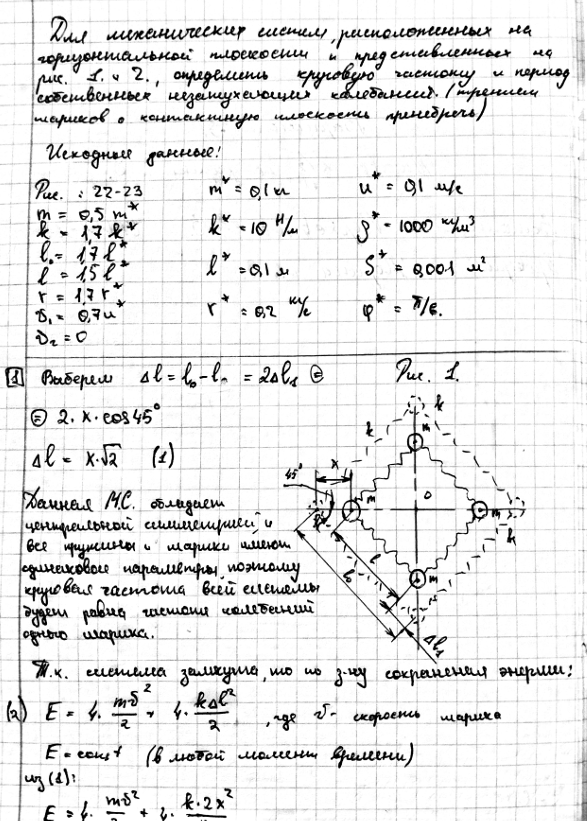 Для механических систем, расположенных на
горизонтальной плоскости и представленных на
рис. 1. и 2., определить круговую частоту и период
собственных незатухающих колебаний. (трением
шариков о контактную плоскость пренебречь)
Исходные данные:
Рис. : 22-23
m = 0,5 m*
k = 1,7 k*
l₀ = 1,7 l*
l = 1,5 l*
r = 1,7 r*
υ₁ = 0,7 u*
υ₂ = 0
m* = 0,1 кг
k* = 10 Н/м
l* = 0,1 м
r* = 0,2 кг/с
u* = 0,1 м/с
ρ* = 1000 кг/м³
S* = 0,001 м²
φ* = π/6.
1 Выберем Δl = l₀ - l = 2Δl₁ =
= 2 · x · cos 45°
Δl = x · √2 (1)
Рис. 1.
k
m
45°
x
m
0
m
k
l
l₀
m
Δl₁
Данная М.С. обладает
центральной симметрией, и
все пружины и шарики имеют
одинаковые параметры, поэтому
круговая частота всей системы
будет равна частоте колебаний
одного шарика.
Т.к. система замкнута, то по з-ну сохранения энергии:
(2) E = 4 · mυ²/2 + 4 · kΔl²/2 , где υ - скорость шарика
E = const (в любой момент времени)
из (1):
E = 4 · mυ²/2 + 4 · k · 2x²